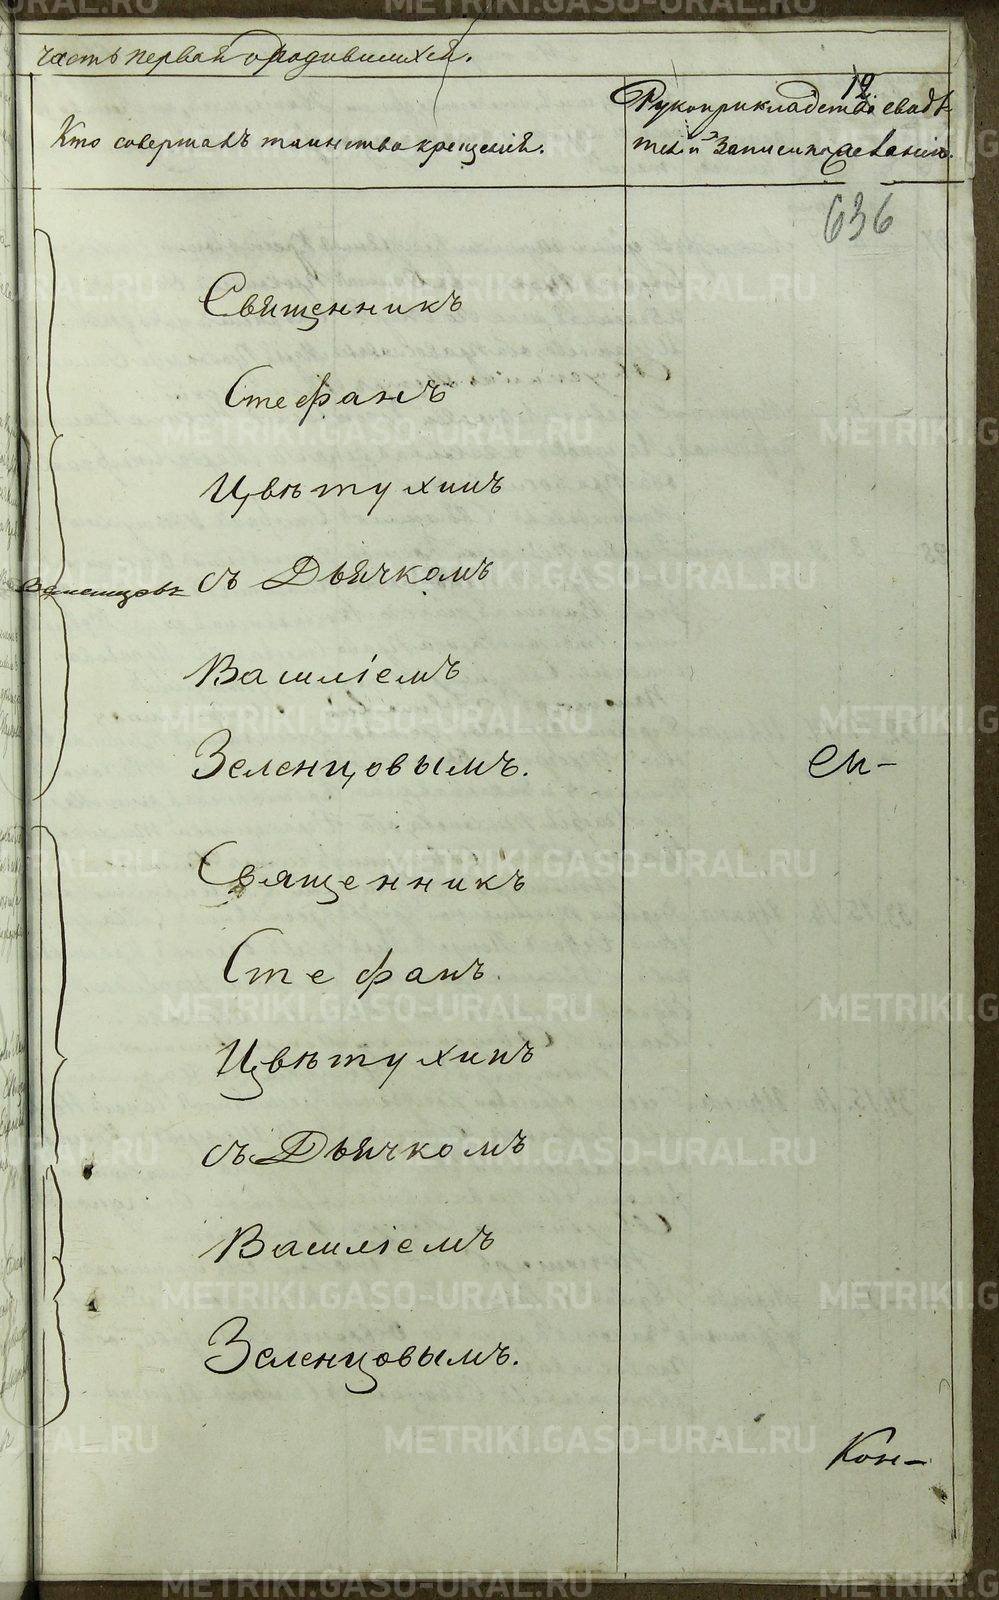 часть первая о родившихся.
12.
Кто совершалъ таинство крещенія.
Рукоприкладство свидѣ-
телей записи по желанію.
636
Священникъ
Стефанъ
Цвѣтухинъ
съ Дьячкомъ
Василіемъ
Зеленцовымъ.
си-
Священникъ
Стефанъ
Цвѣтухинъ
съ Дьячкомъ
Василіемъ
Зеленцовымъ.
Кон-
METRIKI.GASO-URAL.RU